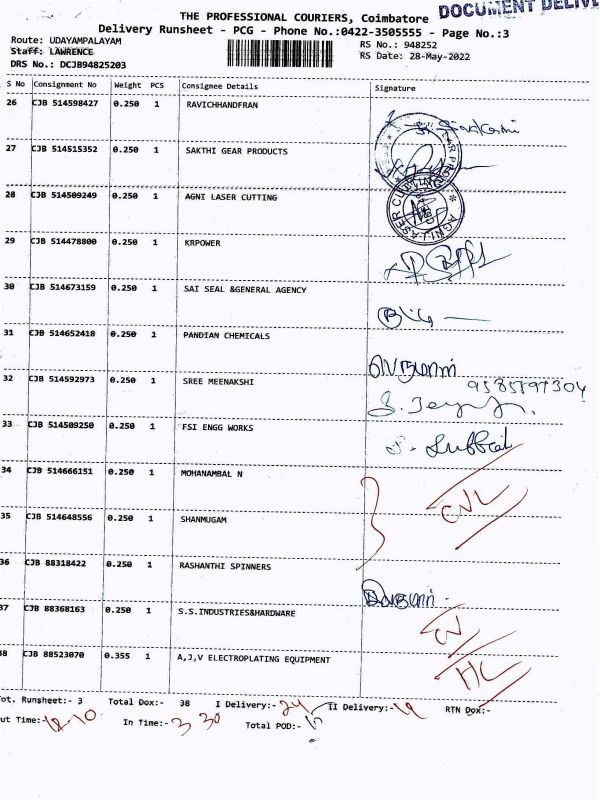 DOCUMENT DELIV
THE PROFESSIONAL COURIERS, Coimbatore
Delivery Runsheet - PCG - Phone No.:0422-3505555 - Page No.:3
Route: UDAYAMPALAYAM RS No.: 948252
Staff: LAWRENCE RS Date: 28-May-2022
DRS No.: DCJB94825203
S No Consignment No Weight PCS Consignee Details Signature
26 CJB 514598427 0.250 1 RAVICHHANDFRAN
27 CJB 514515352 0.250 1 SAKTHI GEAR PRODUCTS
28 CJB 514509249 0.250 1 AGNI LASER CUTTING
29 CJB 514478800 0.250 1 KRPOWER
30 CJB 514673159 0.250 1 SAI SEAL &GENERAL AGENCY
31 CJB 514652418 0.250 1 PANDIAN CHEMICALS
32 CJB 514592973 0.250 1 SREE MEENAKSHI
33 CJB 514509250 0.250 1 FSI ENGG WORKS
34 CJB 514666151 0.250 1 MOHANAMBAL N
35 CJB 514648556 0.250 1 SHANMUGAM
36 CJB 88318422 0.250 1 RASHANTHI SPINNERS
37 CJB 88368163 0.250 1 S.S.INDUSTRIES&HARDWARE
38 CJB 88523070 0.355 1 A,J,V ELECTROPLATING EQUIPMENT
ot. Runsheet:- 3 Total Dox:- 38 I Delivery:- 24 II Delivery:- RTN Dox:-
ut Time:- 12-10 In Time:- 3 30 Total POD:-